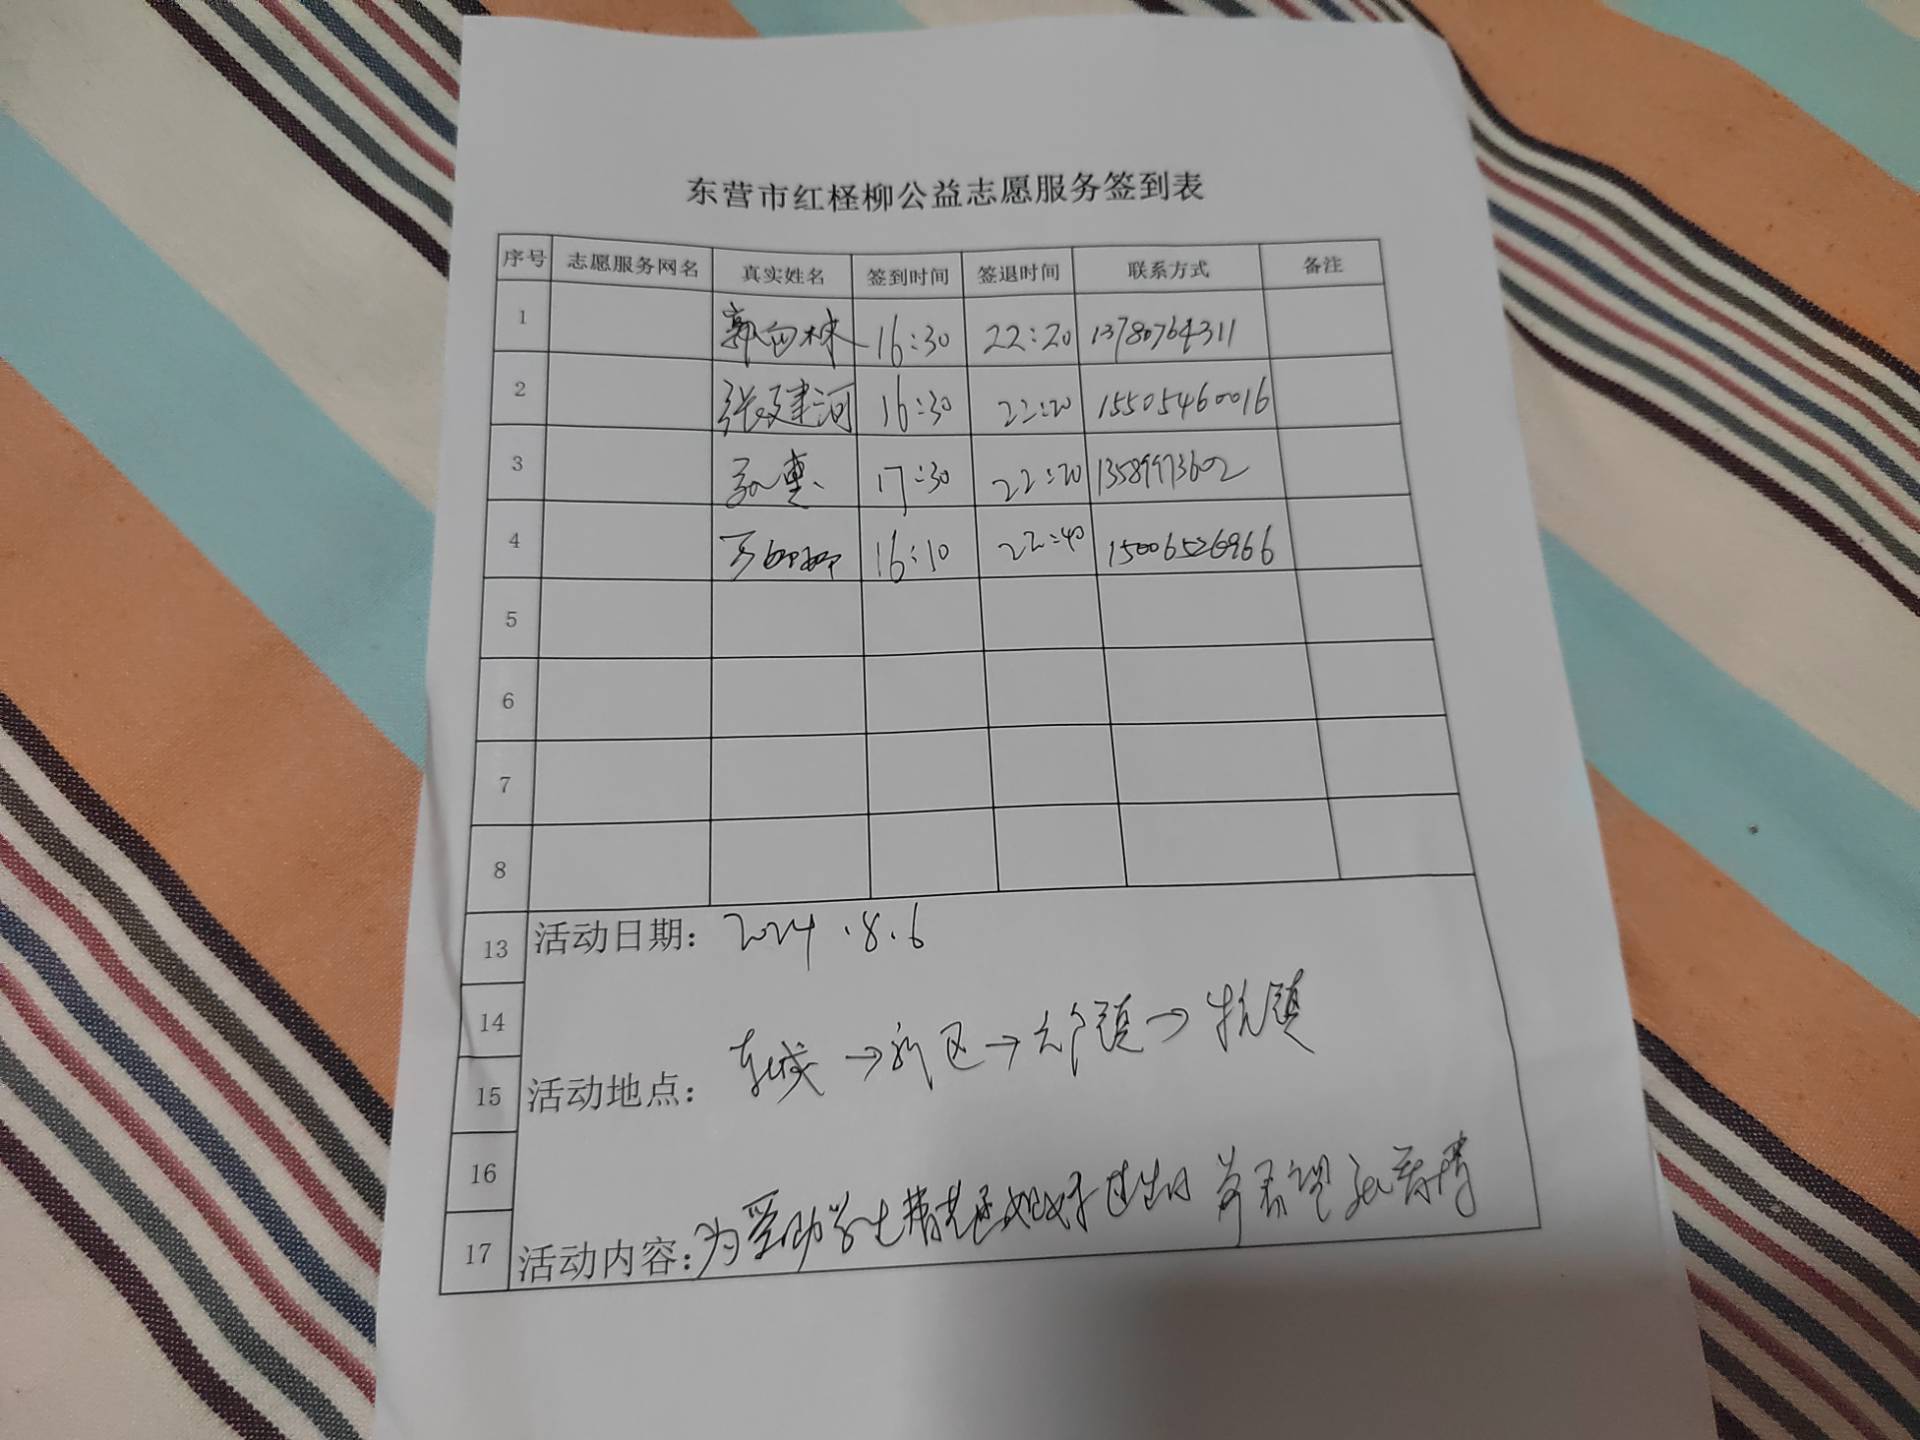 东营市红柽柳公益志愿服务签到表
序号 志愿服务网名 真实姓名 签到时间 签退时间 联系方式 备注
1 16:30 22:20 13780764311
2 张建河 16:30 22:20 15505460016
3 孙惠 17:30 22:20 13589973602
4 16:10 22:40 15006526966
5
6
7
8
13 活动日期: 2024.8.6
14
东城→新区→六户镇→牛庄镇
15 活动地点:
16
17 活动内容: 为受助学生